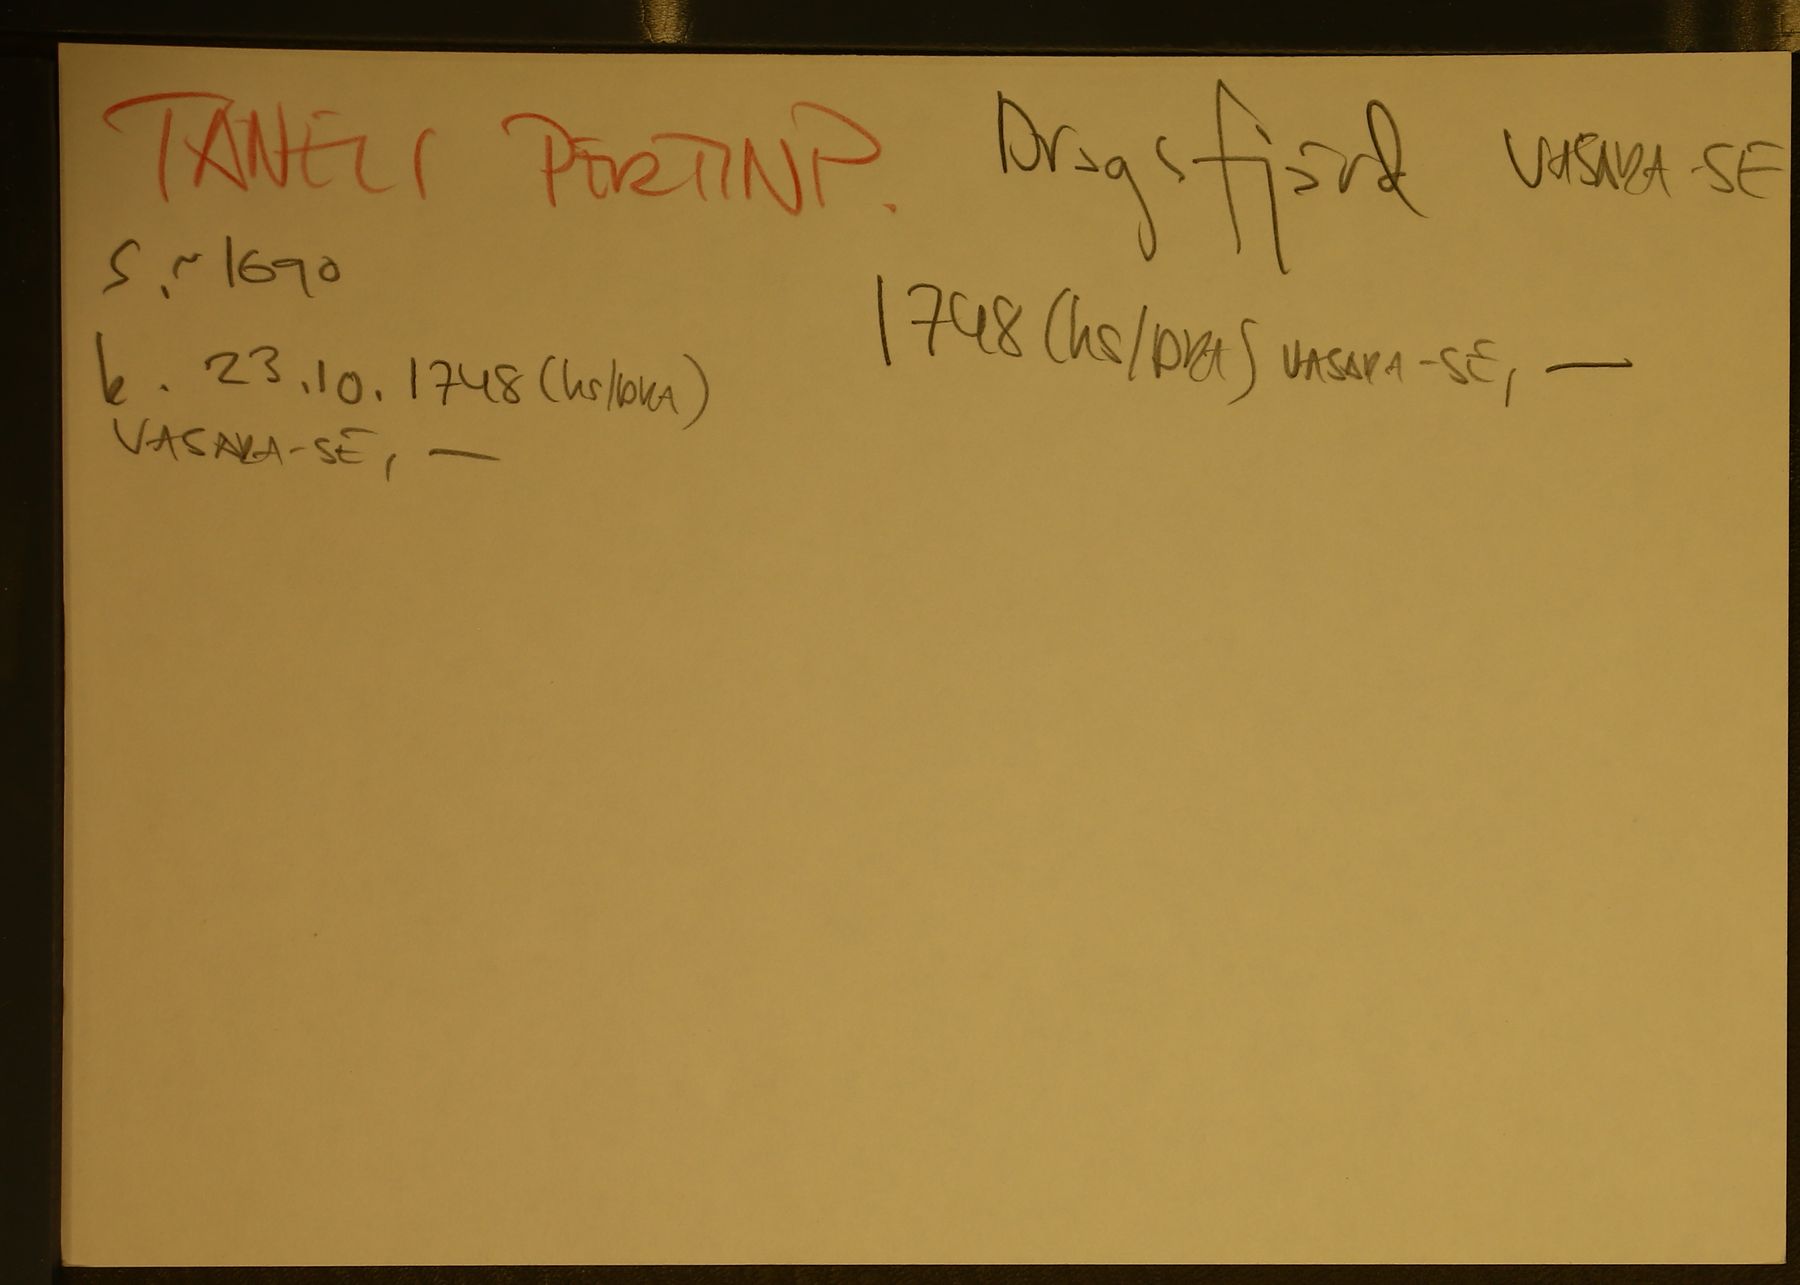 TANELI PERTINP. Dragsfjärd VASARA-SE
s. ~ 1690
k. 23.10.1748 (hs/DKA)
VASARA-SE, —
1748 (hs/DKA) VASARA-SE, —